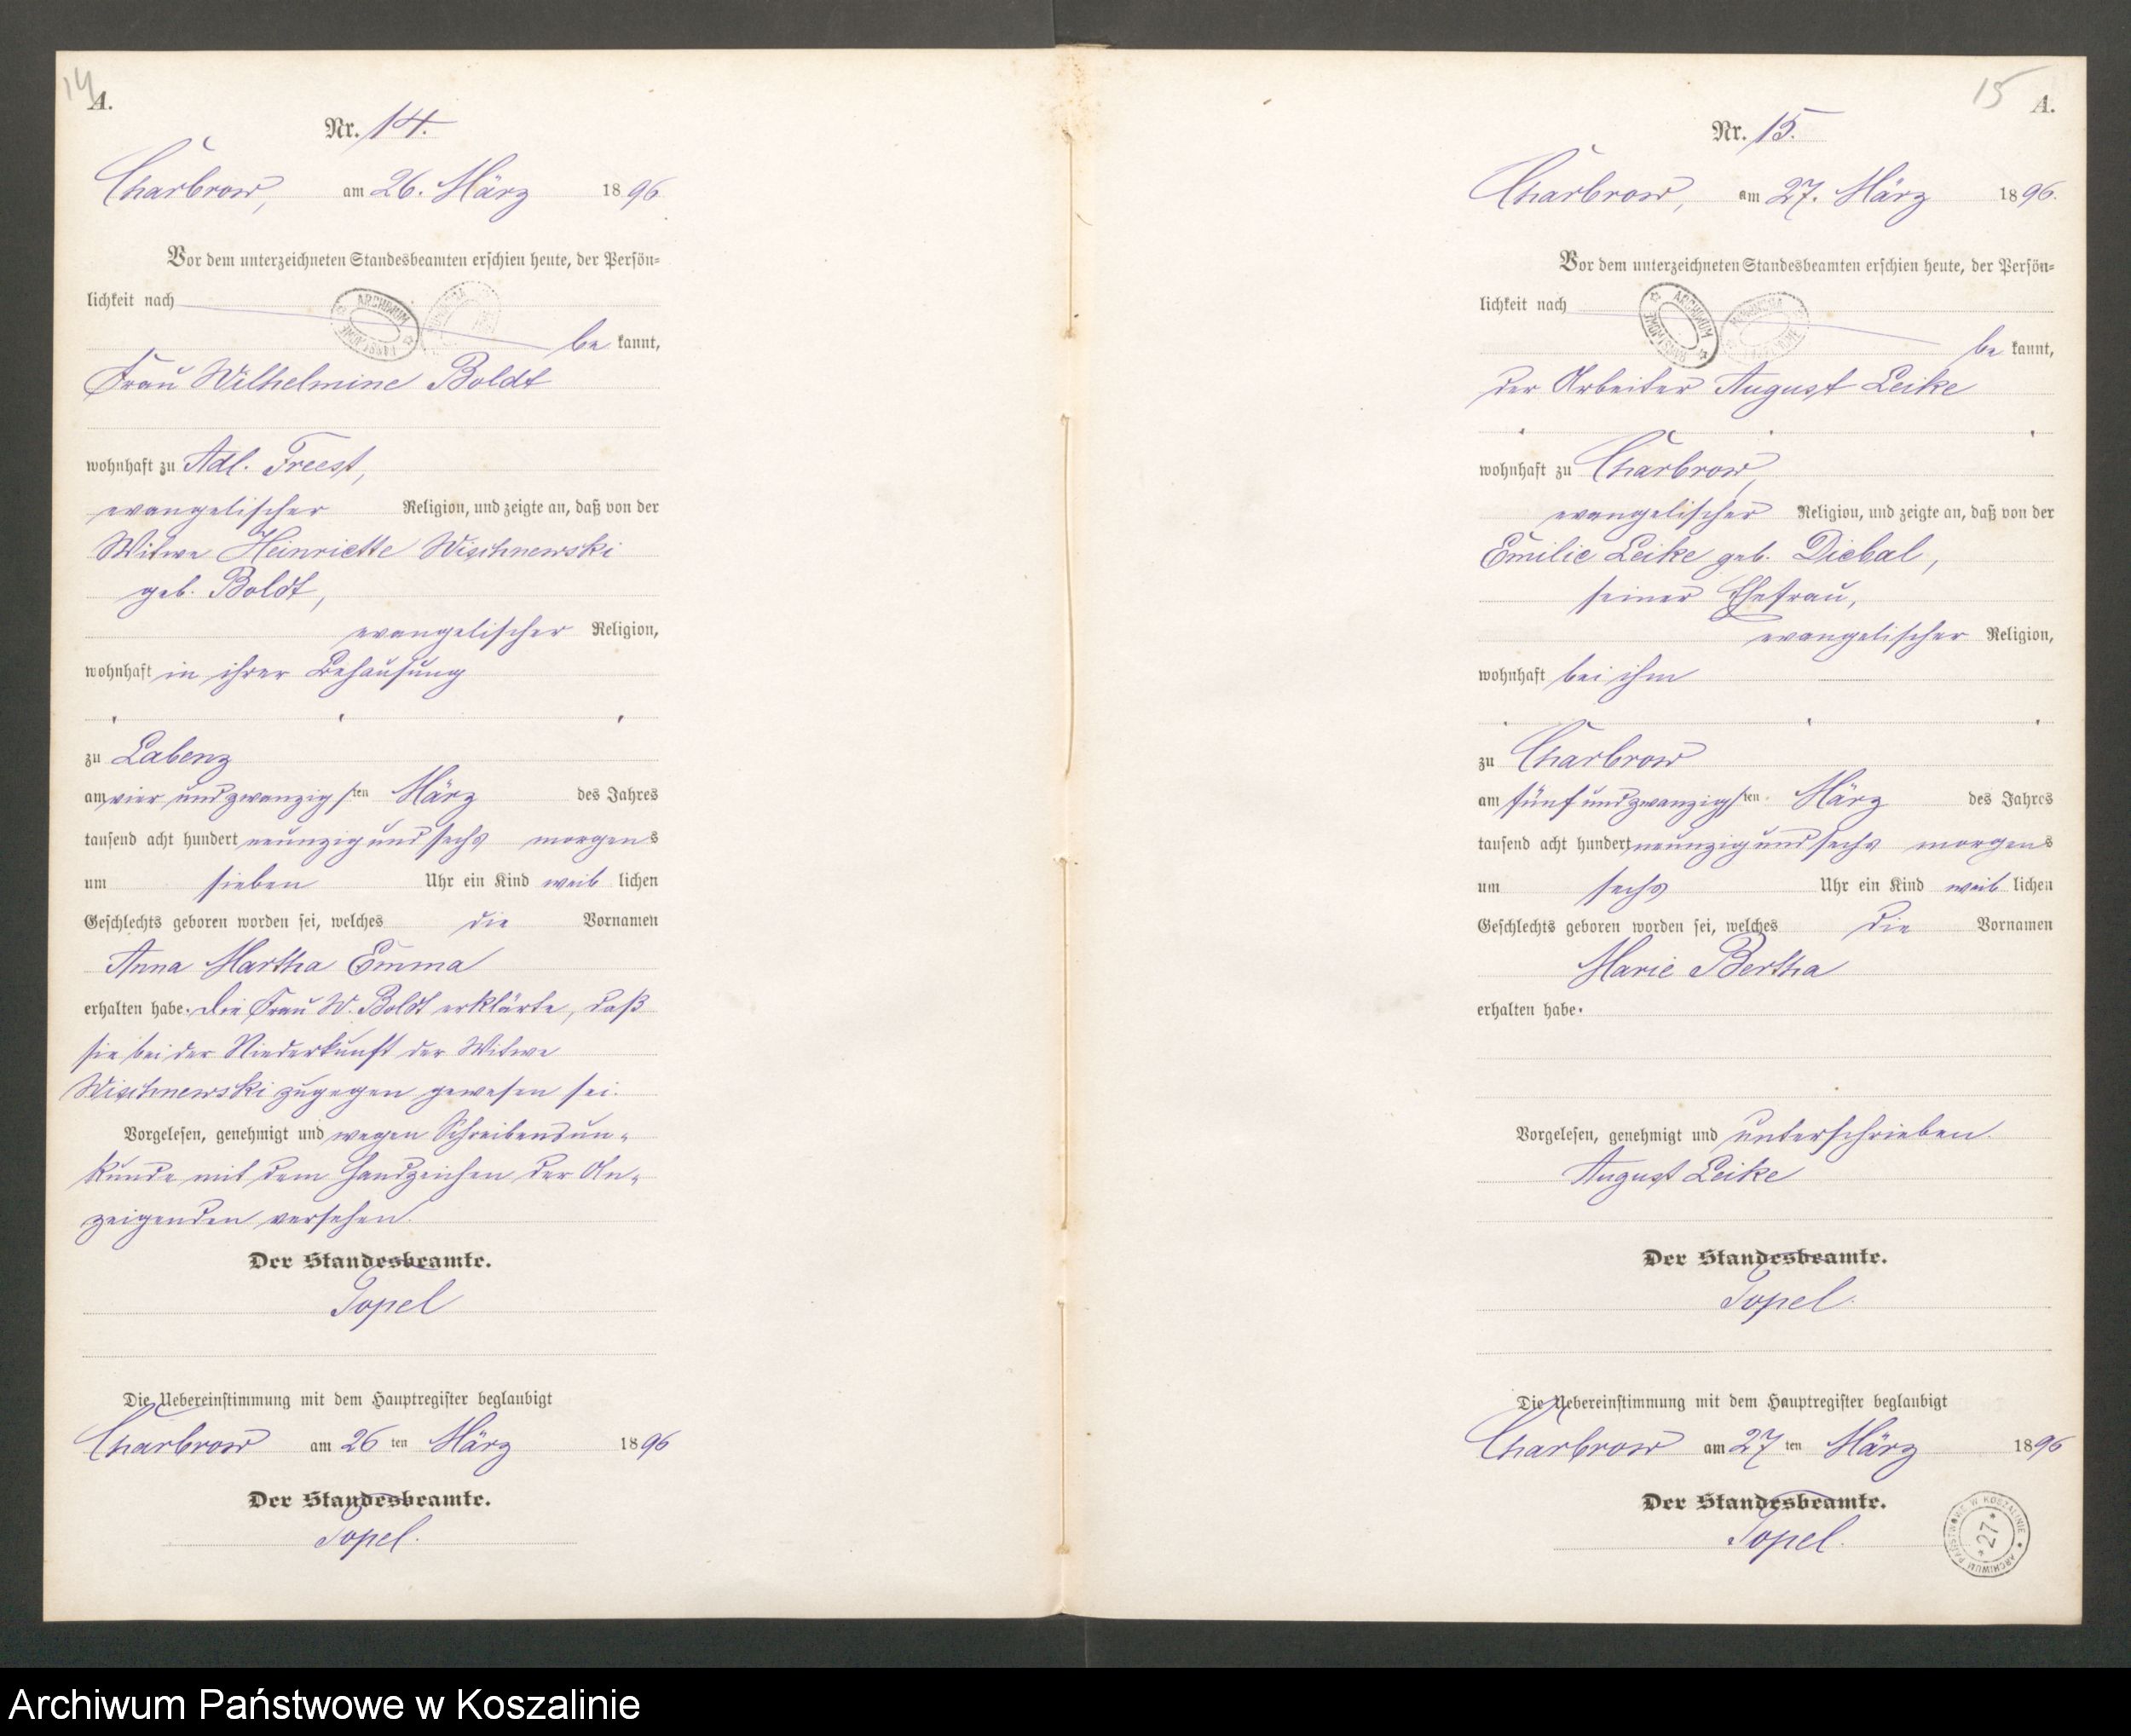 14
A.
Nr. 14.
Charbrow, am 26. März 1896
Vor dem unterzeichneten Standesbeamten erschien heute, der Persön-
lichkeit nach
be kannt,
Frau Wilhelmine Boldt
wohnhaft zu Adl. Freest,
evangelischer Religion, und zeigte an, daß von der
Witwe Heinriette Wischnewski
geb. Boldt,
evangelischer Religion,
wohnhaft in ihrer Behausung
zu Labenz
am vier und zwanzigsten März des Jahres
tausend acht hundert neunzig und sechs morgens
um sieben Uhr ein Kind weib lichen
Geschlechts geboren worden sei, welches die Vornamen
Anna Martha Emma
erhalten habe. Die Frau W. Boldt erklärte, daß
sie bei der Niederkunft der Witwe
Wischnewski zugegen gewesen sei.
Vorgelesen, genehmigt und wegen Schreibensun-
kunde mit dem Handzeichen der An-
zeigenden versehen.
Der Standesbeamte.
Topel
Die Uebereinstimmung mit dem Hauptregister beglaubigt
Charbrow am 26 ten März 1896
Der Standesbeamte.
Topel.
15
A.
Nr. 15.
Charbrow, am 27. März 1896.
Vor dem unterzeichneten Standesbeamten erschien heute, der Persön-
lichkeit nach
be kannt,
der Arbeiter August Leike
wohnhaft zu Charbrow,
evangelischer Religion, und zeigte an, daß von der
Emilie Leike geb. Diebal,
seiner Ehefrau,
evangelischer Religion,
wohnhaft bei ihm
zu Charbrow
am fünf und zwanzigsten März des Jahres
tausend acht hundert neunzig und sechs morgens
um sechs Uhr ein Kind weib lichen
Geschlechts geboren worden sei, welches die Vornamen
Marie Bertha
erhalten habe.
Vorgelesen, genehmigt und unterschrieben.
August Leike
Der Standesbeamte.
Topel.
Die Uebereinstimmung mit dem Hauptregister beglaubigt
Charbrow am 27 ten März 1896
Der Standesbeamte.
Topel.
ARCHIWUM PAŃSTWOWE W KOSZALINIE
*27*
Archiwum Państwowe w Koszalinie